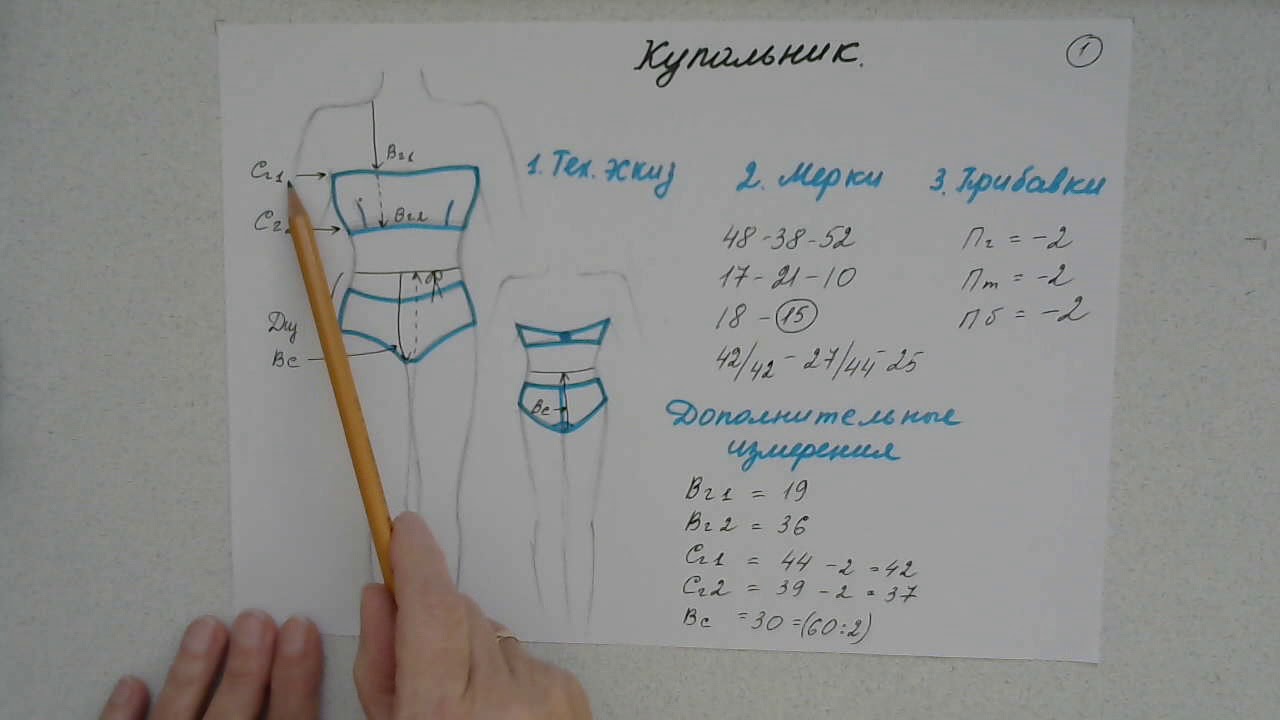 Купальник.
1
1. Тех. эскиз
2. Мерки
48-38-52
17-21-10
18-15
42/42 - 27/44 - 25
3. Прибавки
Пг = -2
Пт = -2
Пб = -2
Дополнительные
измерения
Вг1 = 19
Вг2 = 36
Сг1 = 44 - 2 = 42
Сг2 = 39 - 2 = 37
Вс = 30 = (60:2)
Вг1
Сг1
Вг2
Вс
Вс